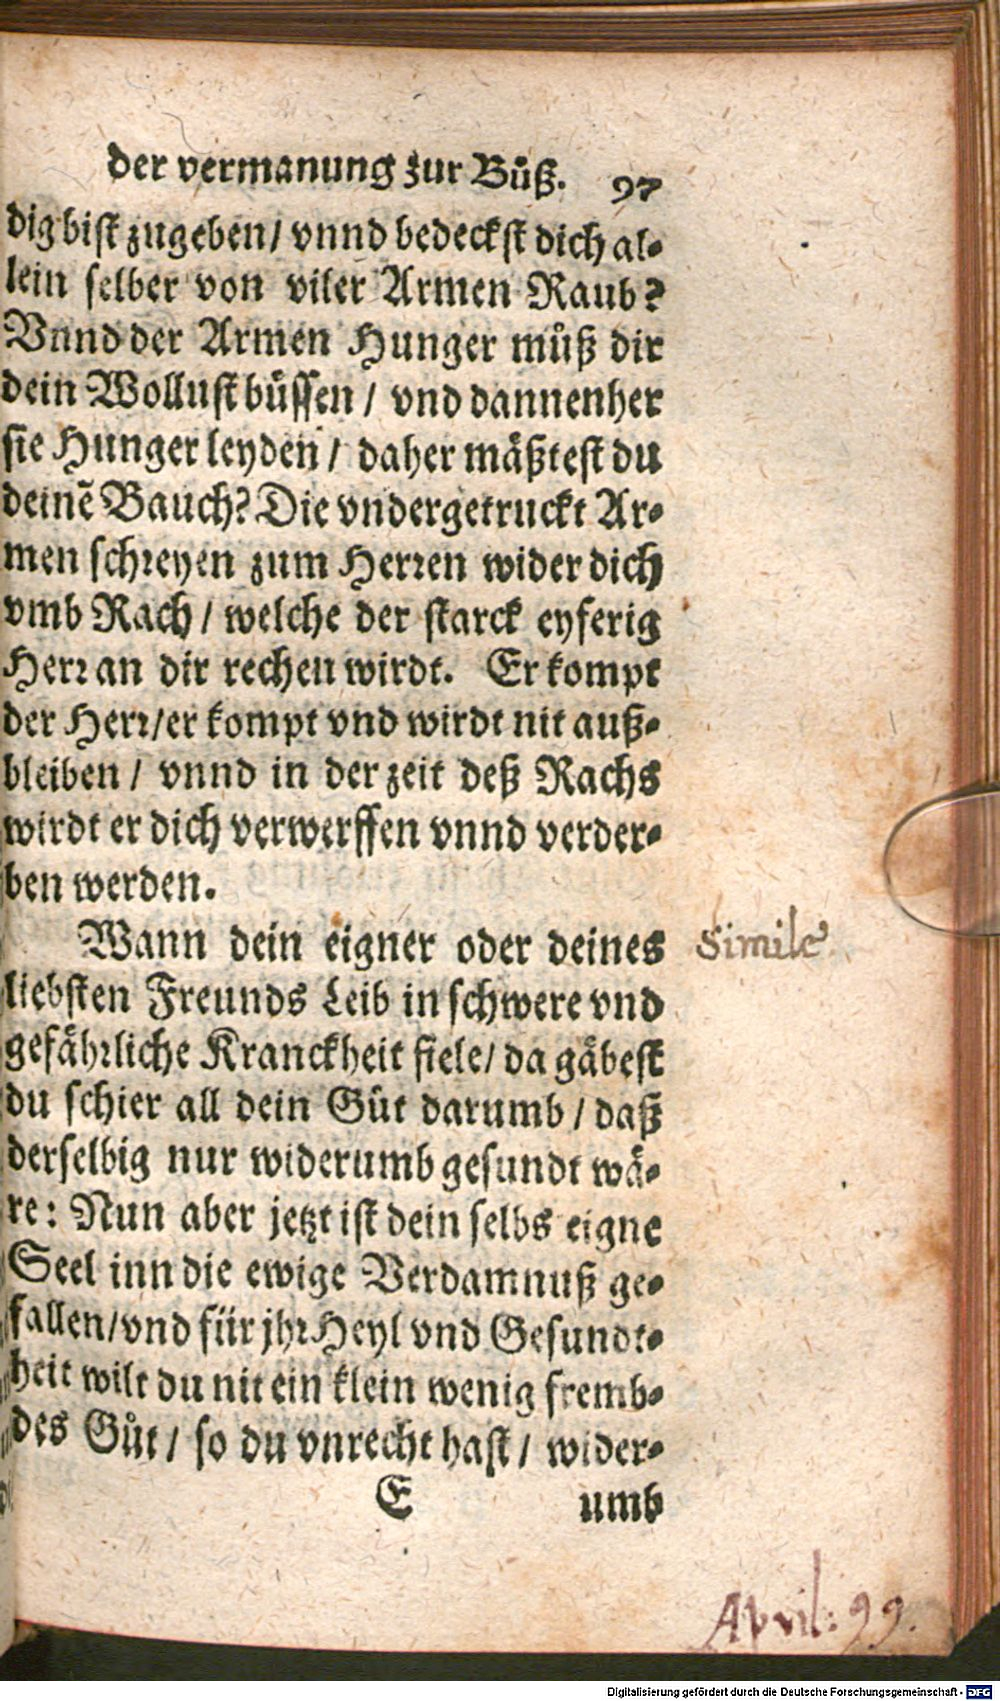 der vermanung zur Bůß. 97
dig bist zugeben/ vnnd bedeckst dich al-
lein selber von viler Armen Raub?
Vnnd der Armen Hunger můß dir
dein Wollust büssen / vnd dannenher
sie Hunger leyden / daher mäßtest du
deinē Bauch? Die vndergetruckt Ar-
men schreyen zum Herren wider dich
vmb Rach / welche der starck eyferig
Herr an dir rechen wirdt. Er kompt
der Herr/er kompt vnd wirdt nit auß-
bleiben / vnnd in der zeit deß Rachs
wirdt er dich verwerffen vnnd verder-
ben werden.
Wann dein eigner oder deines
Simile
liebsten Freunds Leib in schwere vnd
gefährliche Kranckheit fiele/ da gäbest
du schier all dein Gůt darumb / daß
derselbig nur widerumb gesundt wä-
re: Nun aber jetzt ist dein selbs eigne
Seel inn die ewige Verdamnuß ge-
fallen/vnd für jhr Heyl vnd Gesundt-
heit wilt du nit ein klein wenig fremb-
des Gůt / so du vnrecht hast / wider-
E umb
April: 99.
Digitalisierung gefördert durch die Deutsche Forschungsgemeinschaft - DFG